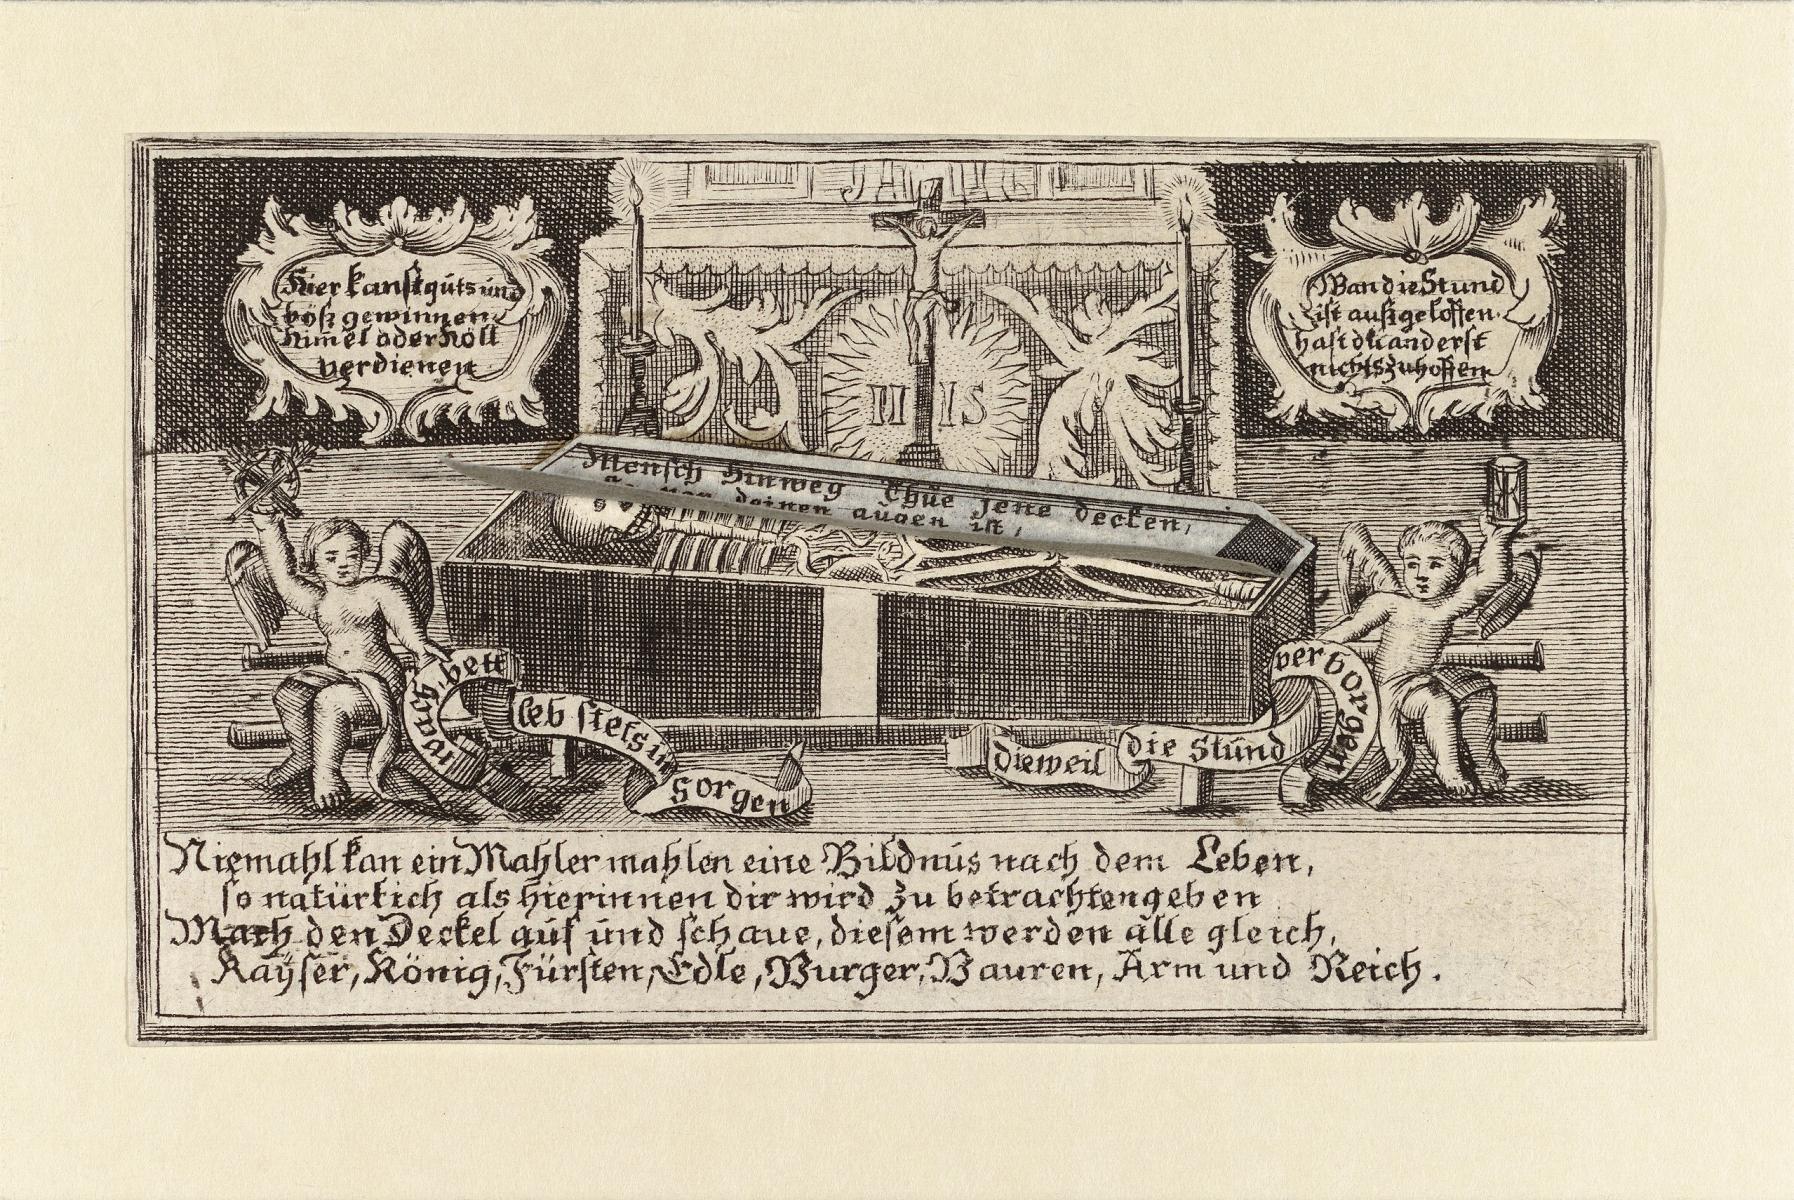 Hier kanst guts und
böß gewinnen
Himel oder Höll
verdienen
Wan die Stund
ist außgeloffen.
hast du anderst
nichts zu hoffen
IHS
Mensch hinweg Thüe jene decken,
deinen augen ist,
wach, bett
leb stets in
Sorgen
dieweil die Stünd
verborgen
Niemahl kan ein Mahler mahlen eine Bildnüs nach dem Leben,
so natürlich als hierinnen dir wird zu betrachten geben
Mach den Deckel auf und schaue, diesem werden alle gleich,
Kaÿser, König, Fürsten, Edle, Burger, Bauren, Arm und Reich.